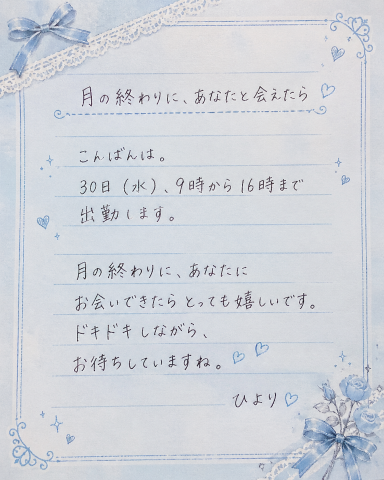 月の終わりに、あなたと会えたら
こんばんは。
30日（水）、9時から16時まで
出勤します。
月の終わりに、あなたに
お会いできたらとっても嬉しいです。
ドキドキしながら、
お待ちしていますね。
ひより